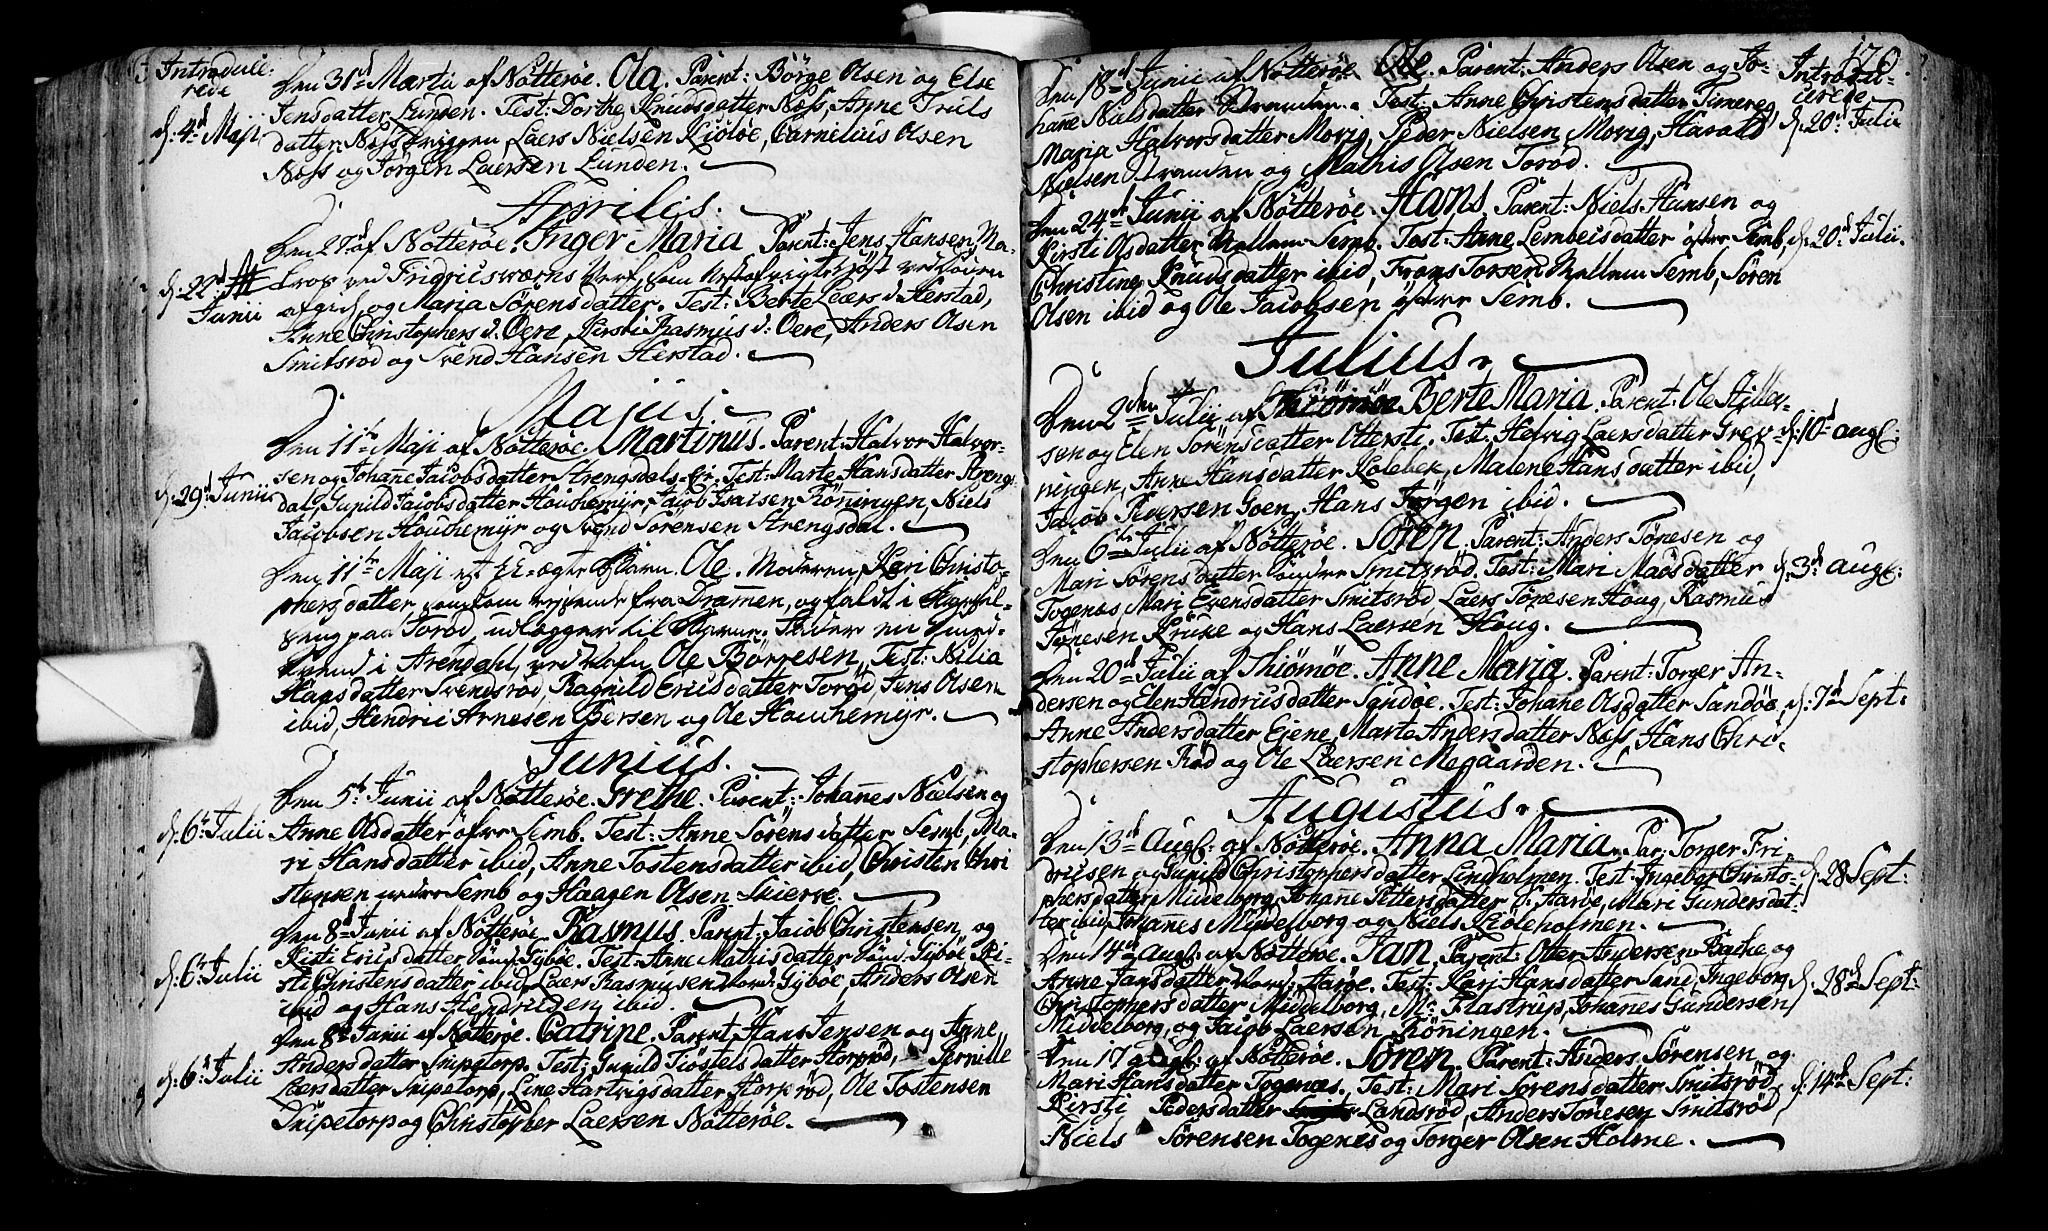 Introduce-
rede
Den 31d Martii af Nøtterøe. Ola. Parent: Børge Olsen og Else
Jensdatter Lunden. Test: Dorthe Knudsdatter Nøss, Anne Truls
d. 4d Maji
datter Nøss, Laers Nielsen Kioløe, Cornelius Olsen
Nøss og Jørgen Laersen Lunden.
Aprilis.
Den 27d af Nøtterøe. Inger Maria Parent: Jens Hansen, Ma-
tros ved Fridricsværns Verf, som
d. 22d
Junii
afgid, og Maria Sørensdatter. Test: Berte Laers d. Herstad,
Anne Christophers d. Oere, Kersti Rasmus d: Oere, Anders Olsen
Smitsrød og Svend Hansen Herstad.
Majus.
Den 11te Maji af Nøtterøe. Martinus. Parent: Halvor Halvor-
d. 29d Junii
sen og Johane Jacobsdatter Strengsdals Ejer. Test: Marte Hansdatter Strengs
dal, Gunild Jacobsdatter Houchemyr, Jacob Isacsen Rønningen, Niels
Jacobsen Houchemyr og Svend Sørensen Strengsdal.
Den 11te Maji et U-ægte Barn. Ole. Moderen, Kari Christo-
phersdatter, som kom rejsende fra Dramen, og faldt i Barsel-
seng paa Torød, udlægger til Barne Fader en Smed-
Svend i Arendahl, ved Nafn Ole Børresen. Test: Nilia
Hansdatter Svendsrød, Ragnild Ericsdatter Torød, Jens Olsen
ibid, Hendric Arnesen Bersen og Ole Houchemyr.
Junius.
Den 5te Junii af Nøtterøe. Grethe. Parent: Johanes Nielsen og
d. 6te Julii
Anne Olsdatter øfre Semb. Test: Anne Sørensdatter Semb, Ma-
ri Hansdatter ibid, Anne Tostensdatter ibid, Christen Chri
stensen nedre Semb og Haagen Olsen Skierve.
Den 8d Junii af Nøtterøe. Rasmus. Parent: Jacob Christensen og
d. 6te Julii
Kisti Ericsdatter Sønd. Gybøe. Test: Anne Mathisdatter Sønd. Gybøe, Ki-
sti Christensdatter ibid, Laers Rasmusen Nord. Gybøe, Anders Olsen
ibid og Hans Hendricsen ibid.
Den 8d Junii af Nøtterøe. Catrine. Parent: Hans Jensen og Anne
d. 6te Julii
Andersdatter Snipetorp. Test: Gunild Kiøstelsdatter Horprød, Pernille
Laersdatter Snipetorp, Line Hartvigsdatter Horprød, Ole Tostensen
Snipetorp og Christopher Laersen Nøtterøe.
176
Introdu-
cerede
Den 18de Junii af Nøtterøe. Ole. Parent: Anders Olsen og Jo-
hane Nielsdatter Stranden. Test: Anne Christensdatter Timereg,
d. 20d Julii
Maria Halvorsdatter Movig, Peder Nielsen Movig, Harald
Nielsen Stranden og Mathis Olsen Torød.
Den 24de Junii af Nøtterøe. Hans. Parent: Niels Hansen og
Kirsti Olsdatter Mellem Semb. Test: Anne Lembeisdatter øfre Semb,
d. 20d Julii.
Christine Knudsdatter ibid, Frans Torsen Mellem Semb, Sören
Olsen ibid og Ole Jacobsen øfre Semb.
Julius.
Den 2den Julii af Thiömöe Berte Maria. Parent: Ole
sen og Elen Sørensdatter Otterste. Test: Helvig Laersdatter Grev-
d. 10d Aug:
ningen, Anne Hansdatter Kolebek, Malene Hansdatter ibid,
Jacob Iversen Goen, Hans Jørgen ibid.
Den 6te Julii af Nøtterøe. Sören. Parent: Anders Tønesen og
Mari Sørensdatter søndre Smitsrød. Test: Mari Madsdatter
d. 3d Aug:
Togenæs, Mari Evensdatter Smitsrød, Laers Tønesen Houg, Rasmus
Tønesen Kruke og Hans Laersen Houg.
Den 20d Julii af Thiömöe. Anne Maria. Parent: Torger An-
dersen og Elen Hendricsdatter Sandøe. Test: Johane Olsdatter Sandøe,
d. 7d Sept:
Anne Andersdatter Ejene, Marte Andersdatter Nøss, Hans Chri-
stophersen Rød og Ole Laersen Megaarden.
Augustus.
Den 13d Aug: af Nøtterøe. Anna Maria. Par: Torger Fri-
dricsen og Gunild Christophersdatter Lindholmen. Test: Ingebor Christo-
d. 28 Sept:
phersdatter Middelborg, Johane Pettersdatter S. Aarøe, Mari Gundersdat-
ter ibid, Johanes Middelborg og Niels Kioleholmen.
Den 14d Aug: af Nøtterøe. Jan. Parent: Otter Andersen Backe og
Anne Jansdatter Nord. Aarøe. Test: Kari Hansdatter Sand, Ingeborg
d. 28de Sept:
Christophersdatter Middelborg, Mr. Flastrup, Johanes Gundersen
Middelborg, og Jacob Laersen Rønningen.
Den 17 Aug: af Nøtterøe. Sören. Parent: Anders Sørensen og
Mari Hansdatter Togenæs. Test: Mari Sørensdatter Smitsrød,
d. 14de Sept:
Kirsti Pedersdatter Landsrød, Anders Tønesen Smitsrød
Niels Sørensen Togenes og Torger Olsen Holme.